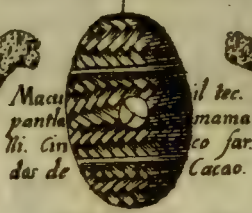 Macu il tec.
pantla mama
lli. Cin co far.
dos de Cacao.